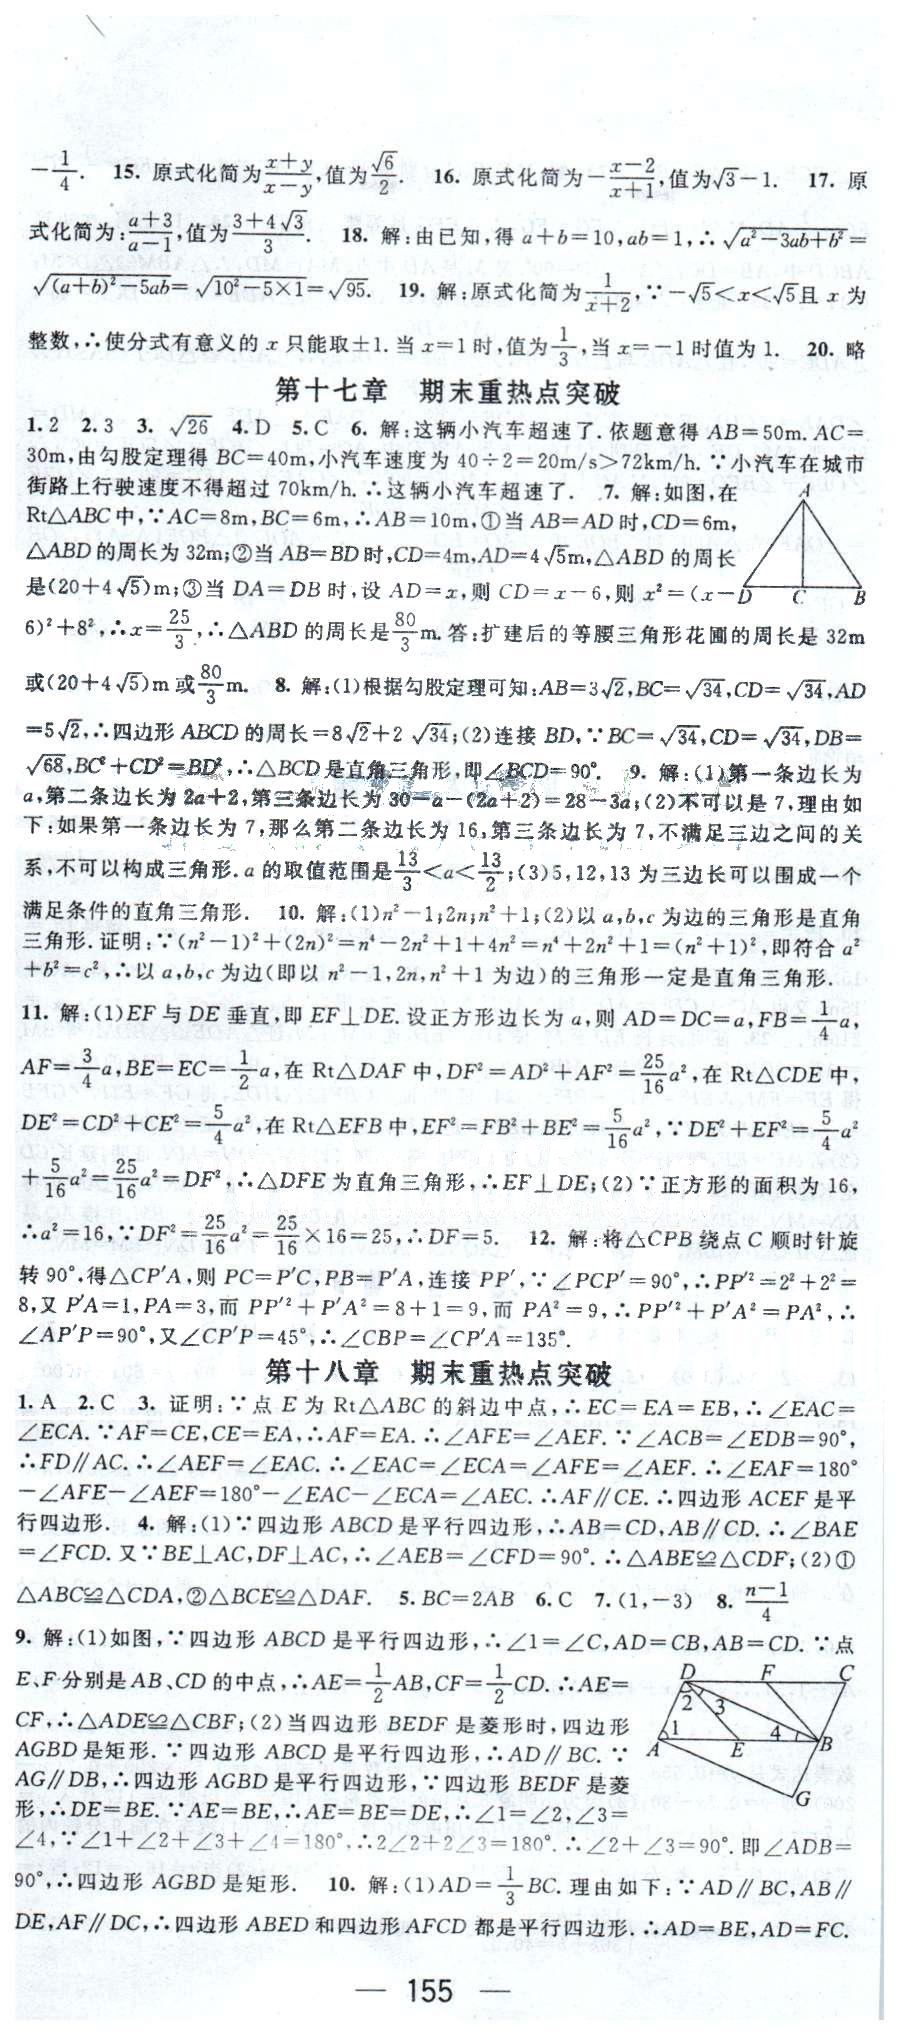 －1/4. 15. 原式化简为(x+y)/(x−y),值为√6/2. 16. 原式化简为－(x−2)/(x+1),值为√3−1. 17. 原
式化简为:(a+3)/(a−1),值为(3+4√3)/3. 18. 解:由已知,得 a+b=10,ab=1,∴√(a²−3ab+b²)=
√((a+b)²−5ab)=√(10²−5×1)=√95. 19. 解:原式化简为1/(x+2),∵−√5<x<√5且 x 为
整数,∴使分式有意义的 x 只能取±1.当 x=1时,值为1/3,当 x=−1时值为 1. 20. 略
第十七章 期末重热点突破
1.2 2.3 3. √26 4.D 5.C 6. 解:这辆小汽车超速了.依题意得 AB=50m.AC=
30m,由勾股定理得 BC=40m,小汽车速度为 40÷2=20m/s>72km/h.∵小汽车在城市
街路上行驶速度不得超过 70km/h.∴这辆小汽车超速了. 7. 解:如图,在
Rt△ABC中,∵AC=8m,BC=6m,∴AB=10m,①当 AB=AD 时,CD=6m,
△ABD的周长为 32m;②当 AB=BD时,CD=4m,AD=4√5m,△ABD 的周长
是(20+4√5)m;③当 DA=DB 时,设 AD=x,则 CD=x−6,则 x²=(x−
A
D C B
6)²+8²,∴x=25/3,∴△ABD 的周长是80/3m.答:扩建后的等腰三角形花圃的周长是 32m
或(20+4√5)m或80/3m. 8. 解:(1)根据勾股定理可知:AB=3√2,BC=√34,CD=√34,AD
=5√2,∴四边形 ABCD的周长=8√2+2√34;(2)连接 BD,∵BC=√34,CD=√34,DB=
√68,BC²+CD²=BD²,∴△BCD是直角三角形,即∠BCD=90°. 9. 解:(1)第一条边长为
a,第二条边长为 2a+2,第三条边长为 30−a−(2a+2)=28−3a;(2)不可以是 7,理由如
下:如果第一条边长为 7,那么第二条边长为 16,第三条边长为 7,不满足三边之间的关
系,不可以构成三角形.a 的取值范围是13/3<a<13/2;(3)5,12,13 为三边长可以围成一个
满足条件的直角三角形. 10. 解:(1)n²−1;2n;n²+1;(2)以 a,b,c 为边的三角形是直角
三角形.证明:∵(n²−1)²+(2n)²=n⁴−2n²+1+4n²=n⁴+2n²+1=(n²+1)²,即符合 a²
+b²=c²,∴以 a,b,c 为边(即以 n²−1,2n,n²+1 为边)的三角形一定是直角三角形.
11. 解:(1)EF 与 DE 垂直,即 EF⊥DE.设正方形边长为 a,则 AD=DC=a,FB=1/4a,
AF=3/4a,BE=EC=1/2a,在 Rt△DAF 中,DF²=AD²+AF²=25/16a²,在 Rt△CDE 中,
DE²=CD²+CE²=5/4a²,在 Rt△EFB 中,EF²=FB²+BE²=5/16a²,∵DE²+EF²=5/4a²
+5/16a²=25/16a²=DF²,∴△DFE 为直角三角形,∴EF⊥DE;(2)∵正方形的面积为 16,
∴a²=16,∵DF²=25/16a²=25/16×16=25,∴DF=5. 12. 解:将△CPB 绕点 C 顺时针旋
转 90°,得△CP′A,则 PC=P′C,PB=P′A,连接 PP′,∵∠PCP′=90°,∴PP′²=2²+2²=
8,又 P′A=1,PA=3,而 PP′²+P′A²=8+1=9,而 PA²=9,∴PP′²+P′A²=PA²,∴
∠AP′P=90°,又∠CP′P=45°,∴∠CBP=∠CP′A=135°.
第十八章 期末重热点突破
1. A 2. C 3. 证明:∵点 E 为 Rt△ABC 的斜边中点,∴EC=EA=EB,∴∠EAC=
∠ECA.∵AF=CE,CE=EA,∴AF=EA.∴∠AFE=∠AEF.∵∠ACB=∠EDB=90°,
∴FD∥AC.∴∠AEF=∠EAC.∴∠EAC=∠ECA=∠AFE=∠AEF.∴∠EAF=180°
−∠AFE−∠AEF=180°−∠EAC−∠ECA=∠AEC.∴AF∥CE.∴四边形 ACEF 是平
行四边形. 4. 解:(1)∵四边形 ABCD 是平行四边形,∴AB=CD,AB∥CD.∴∠BAE
=∠FCD.又∵BE⊥AC,DF⊥AC,∴∠AEB=∠CFD=90°.∴△ABE≌△CDF;(2)①
△ABC≌△CDA,②△BCE≌△DAF. 5. BC=2AB 6. C 7. (1,−3) 8. (n−1)/4
9. 解:(1)如图,∵四边形 ABCD 是平行四边形,∴∠1=∠C,AD=CB,AB=CD.∵点
E、F分别是AB、CD 的中点,∴AE=1/2AB,CF=1/2CD.∴AE=
CF,∴△ADE≌△CBF;(2)当四边形 BEDF 是菱形时,四边形
AGBD是矩形.∵四边形 ABCD 是平行四边形,∴AD∥BC.∵
AG∥DB,∴四边形 AGBD是平行四边形,∵四边形 BEDF 是菱
形,∴DE=BE.∵AE=BE,∴AE=BE=DE,∴∠1=∠2,∠3=
D F C
2 3
A 1 E 4 B
G
∠4,∵∠1+∠2+∠3+∠4=180°,∴2∠2+2∠3=180°.∴∠2+∠3=90°.即∠ADB=
90°,∴四边形 AGBD 是矩形. 10. 解:(1)AD=1/3BC.理由如下:∵AD∥BC,AB∥
DE,AF∥DC,∴四边形 ABED和四边形 AFCD 都是平行四边形.∴AD=BE,AD=FC.
— 155 —